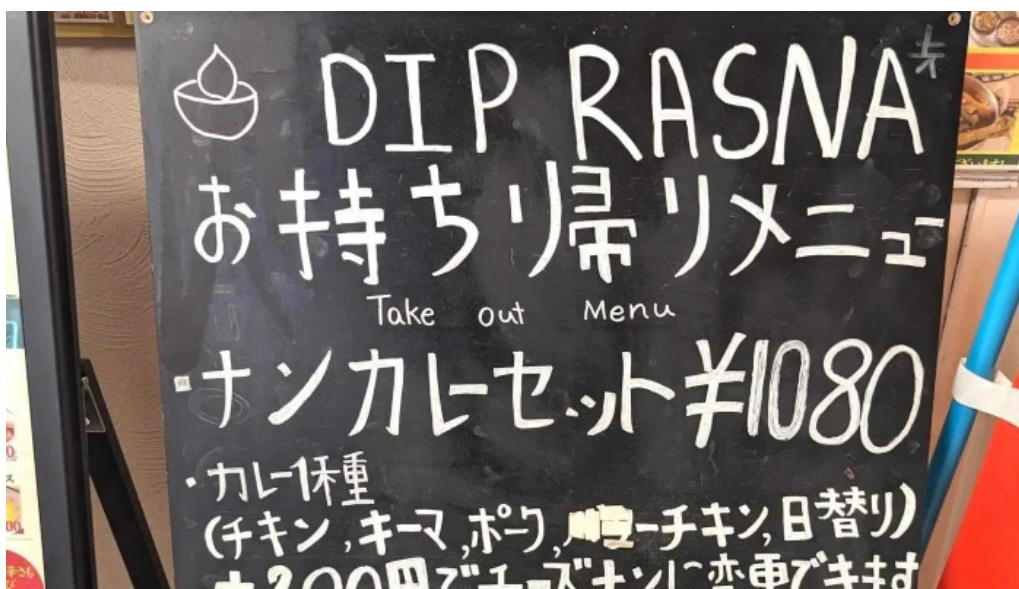 DIP RASNA
お持ち帰りメニュー
Take out Menu
・ナンカレーセット ¥1080
・カレー1種
(チキン,キーマ,ポーク,ーチキン,日替り)
+200円でチーズナンに変更できます